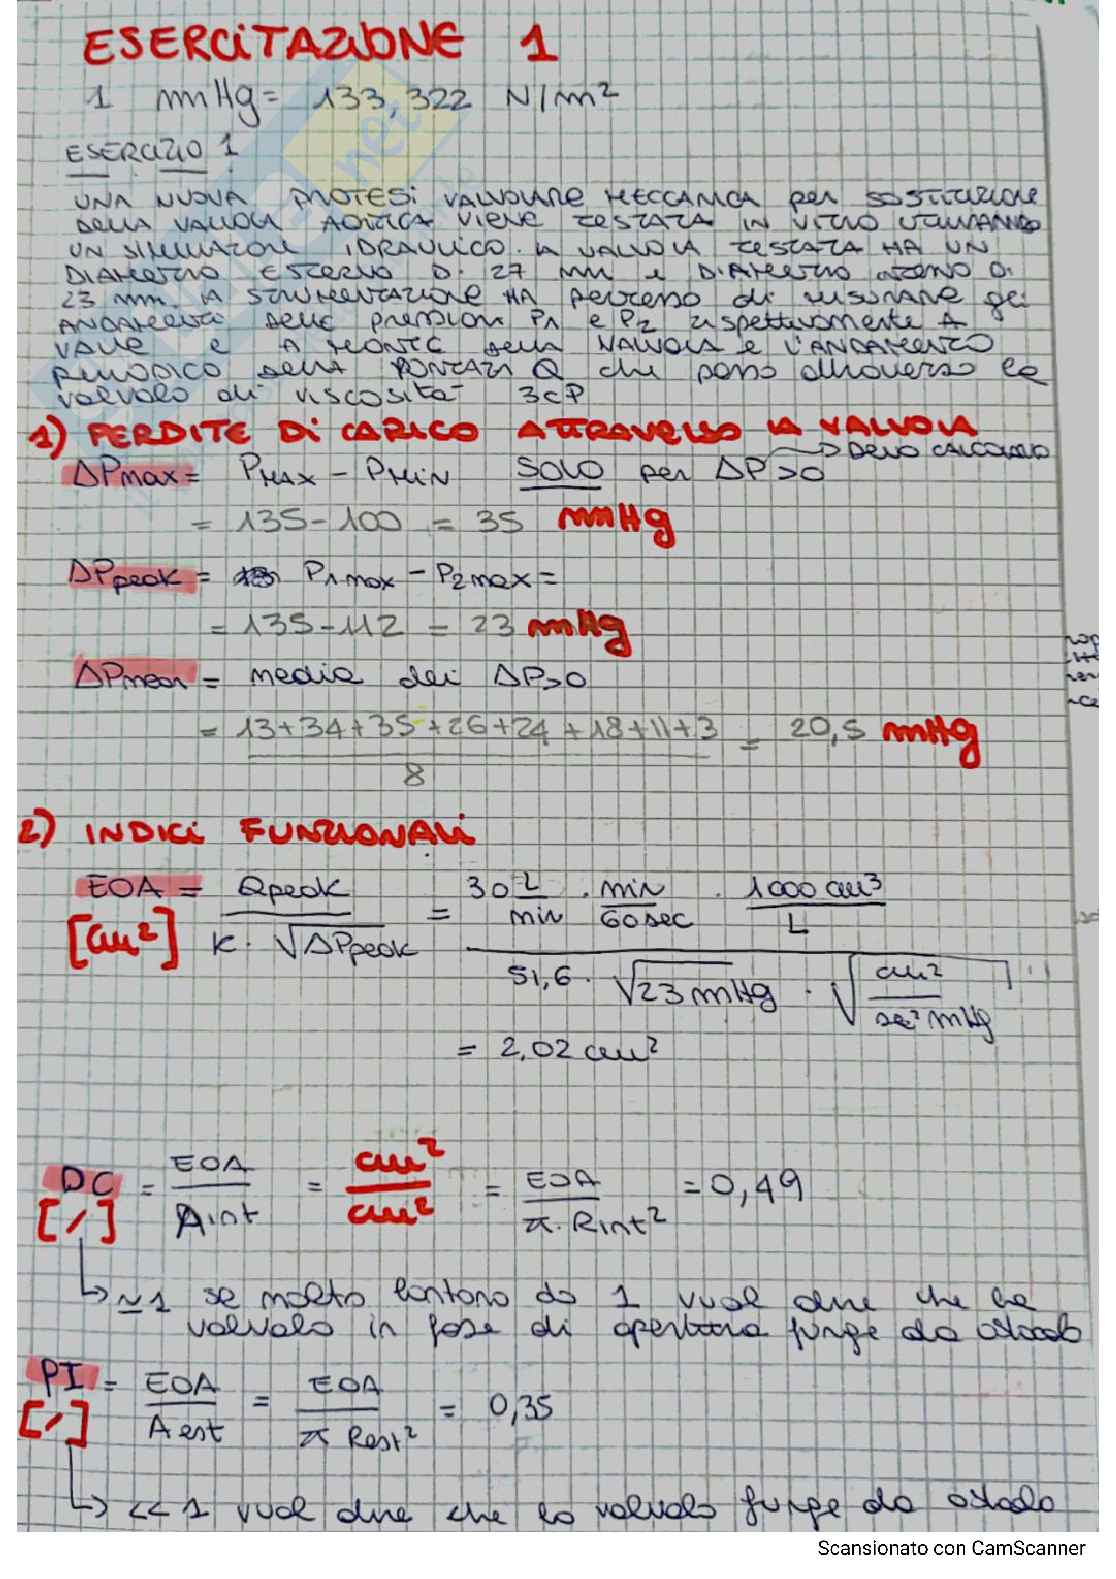 ESERCITAZIONE 1
1 mmHg = 133,322 N/m²
ESERCIZIO 1
UNA NUOVA PROTESI VALVOLARE MECCANICA per SOSTITUZIONE
DELLA VALVOLA AORTICA VIENE TESTATA IN VITRO UTILIZZANDO
UN SIMULATORE IDRAULICO. LA VALVOLA TESTATA HA UN
DIAMETRO ESTERNO DI 27 mm e DIAMETRO INTERNO DI
23 mm. LA STRUMENTAZIONE HA permesso di misurare gli
ANDAMENTI DELLE pressioni P1 e P2 rispettivamente A
VALLE e A MONTE DELLA VALVOLA e L'ANDAMENTO
PERIODICO DELLA PORTATA Q che passa attraverso la
valvola di viscosità 3cP
1) PERDITE DI CARICO ATTRAVERSO LA VALVOLA
→ DEVO CALCOLARLO
ΔPmax = PMAX - PMIN SOLO per ΔP>0
= 135-100 = 35 mmHg
ΔPpeak = P1max - P2max =
= 135-112 = 23 mmHg
ΔPmean = media dei ΔP>0
= 13+34+35+26+24+18+11+3 / 8 = 20,5 mmHg
2) INDICI FUNZIONALI
EOA = Qpeak / K · √ΔPpeak = 30 L/min · min/60sec · 1000 cm³/L / 51,6 · √23 mmHg · √cm²/sec² mmHg
[cm²]
= 2,02 cm²
DC = EOA / Aint = cm²/cm² = EOA / π · Rint² = 0,49
[/]
↳ ≃1 se molto lontano da 1 vuol dire che la
valvola in fase di apertura funge da ostacolo
PI = EOA / Aest = EOA / π Rest² = 0,35
[/]
↳ <<1 vuol dire che la valvola funge da ostacolo
Scansionato con CamScanner